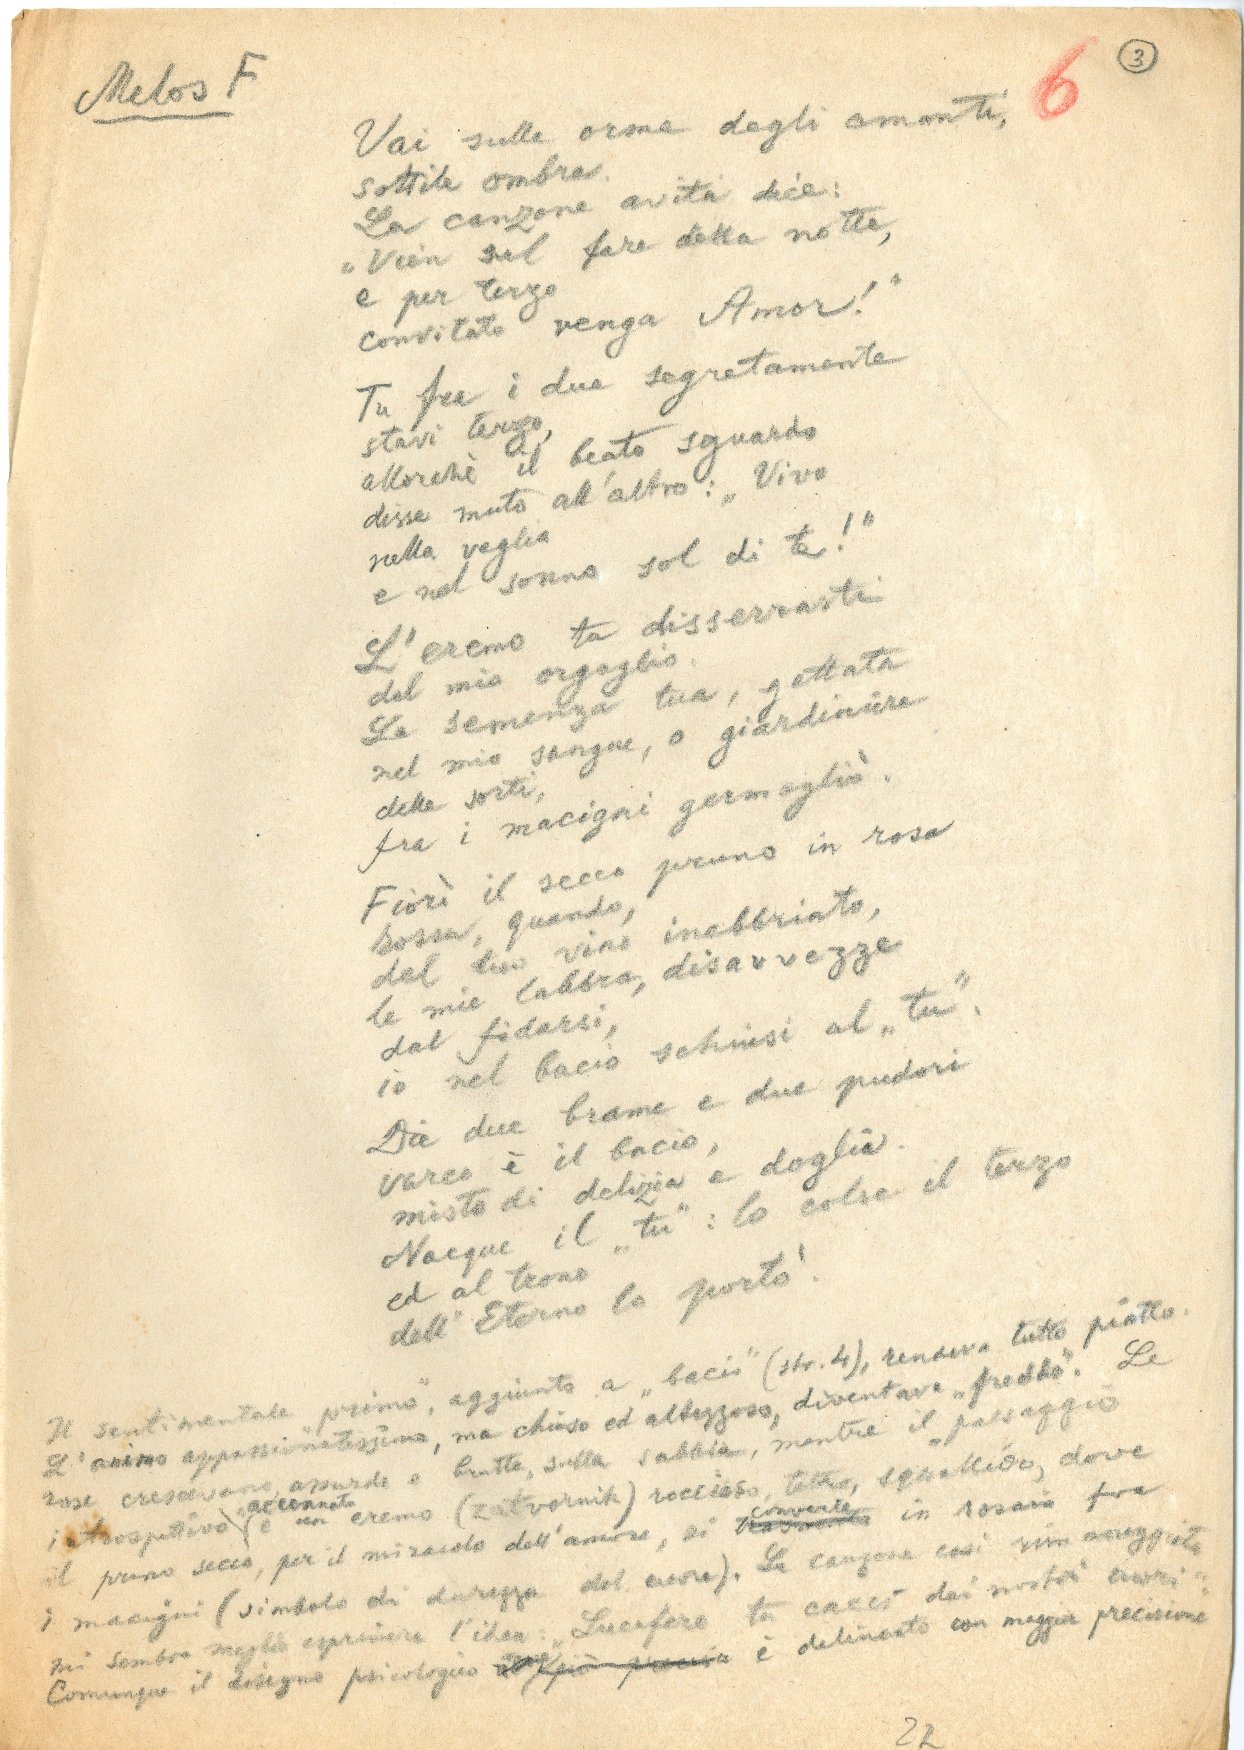 Melos F
6
3
Vai sulle orme degli amanti,
sottile ombra.
La canzone avita dice:
„Vien sul fare della notte,
e per terzo
convitato venga Amor!"
Tu fra i due segretamente
stavi terzo,
allorchè il beato sguardo
disse muto all'altro: „Vivo
nella veglia
e nel sonno sol di te!"
L'eremo tu disserrasti
del mio orgoglio.
La semenza tua, gettata
nel mio sangue, o giardiniere
delle sorti,
fra i macigni germogliò.
Fiorì il secco pruno in rosa
rossa, quando,
del tuo vino inebbriato,
le mie labbra, disavvezze
dal fidarsi,
io nel bacio schiusi al „tu".
Die due brame e due pudori
varco è il bacio,
misto di delizia e doglia.
Nacque il „tu": lo colse il terzo
ed al trono
dell'Eterno lo portò.
Il sentimentale „primo", aggiunto a „bacio" (str. 4), rendeva tutto piatto.
L'animo appassionatissimo, ma chiuso ed altezzoso, diventava „freddo". Le
rose crescevano, assurde e brutte, sulla sabbia, mentre il „paesaggio
introspettivo" accennato è un eremo (zatvornik) roccioso, tetro, squallido, dove
il pruno secco, per il miracolo dell'amore, si converte in rosaio fra
i macigni (simbolo di durezza del cuore). La canzone così rimaneggiata
mi sembra meglio esprimere l'idea: „Lucifero tu cacci dai nostri cuori".
Comunque il disegno psicologico è delineato con maggior precisione
22